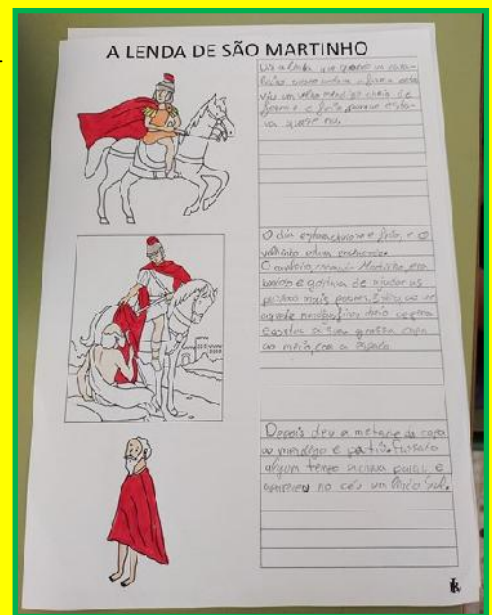 A LENDA DE SÃO MARTINHO
Diz a lenda que quando um cava-
leiro
viu um velho mendigo cheio de
fome e frio porque esta-
va quase nu.
O dia estava chuvoso e frio, e o
velhinho estava
O cavaleiro, Martinho, era
bondoso e gostava de ajudar as
pessoas mais pobres. Então, ao ver
aquele mendigo, ficou
cortou a sua grossa capa
ao meio, com a espada.
Depois deu a metade da capa
ao mendigo e partiu. Passado
algum tempo a chuva parou e
apareceu no céu um lindo Sol.